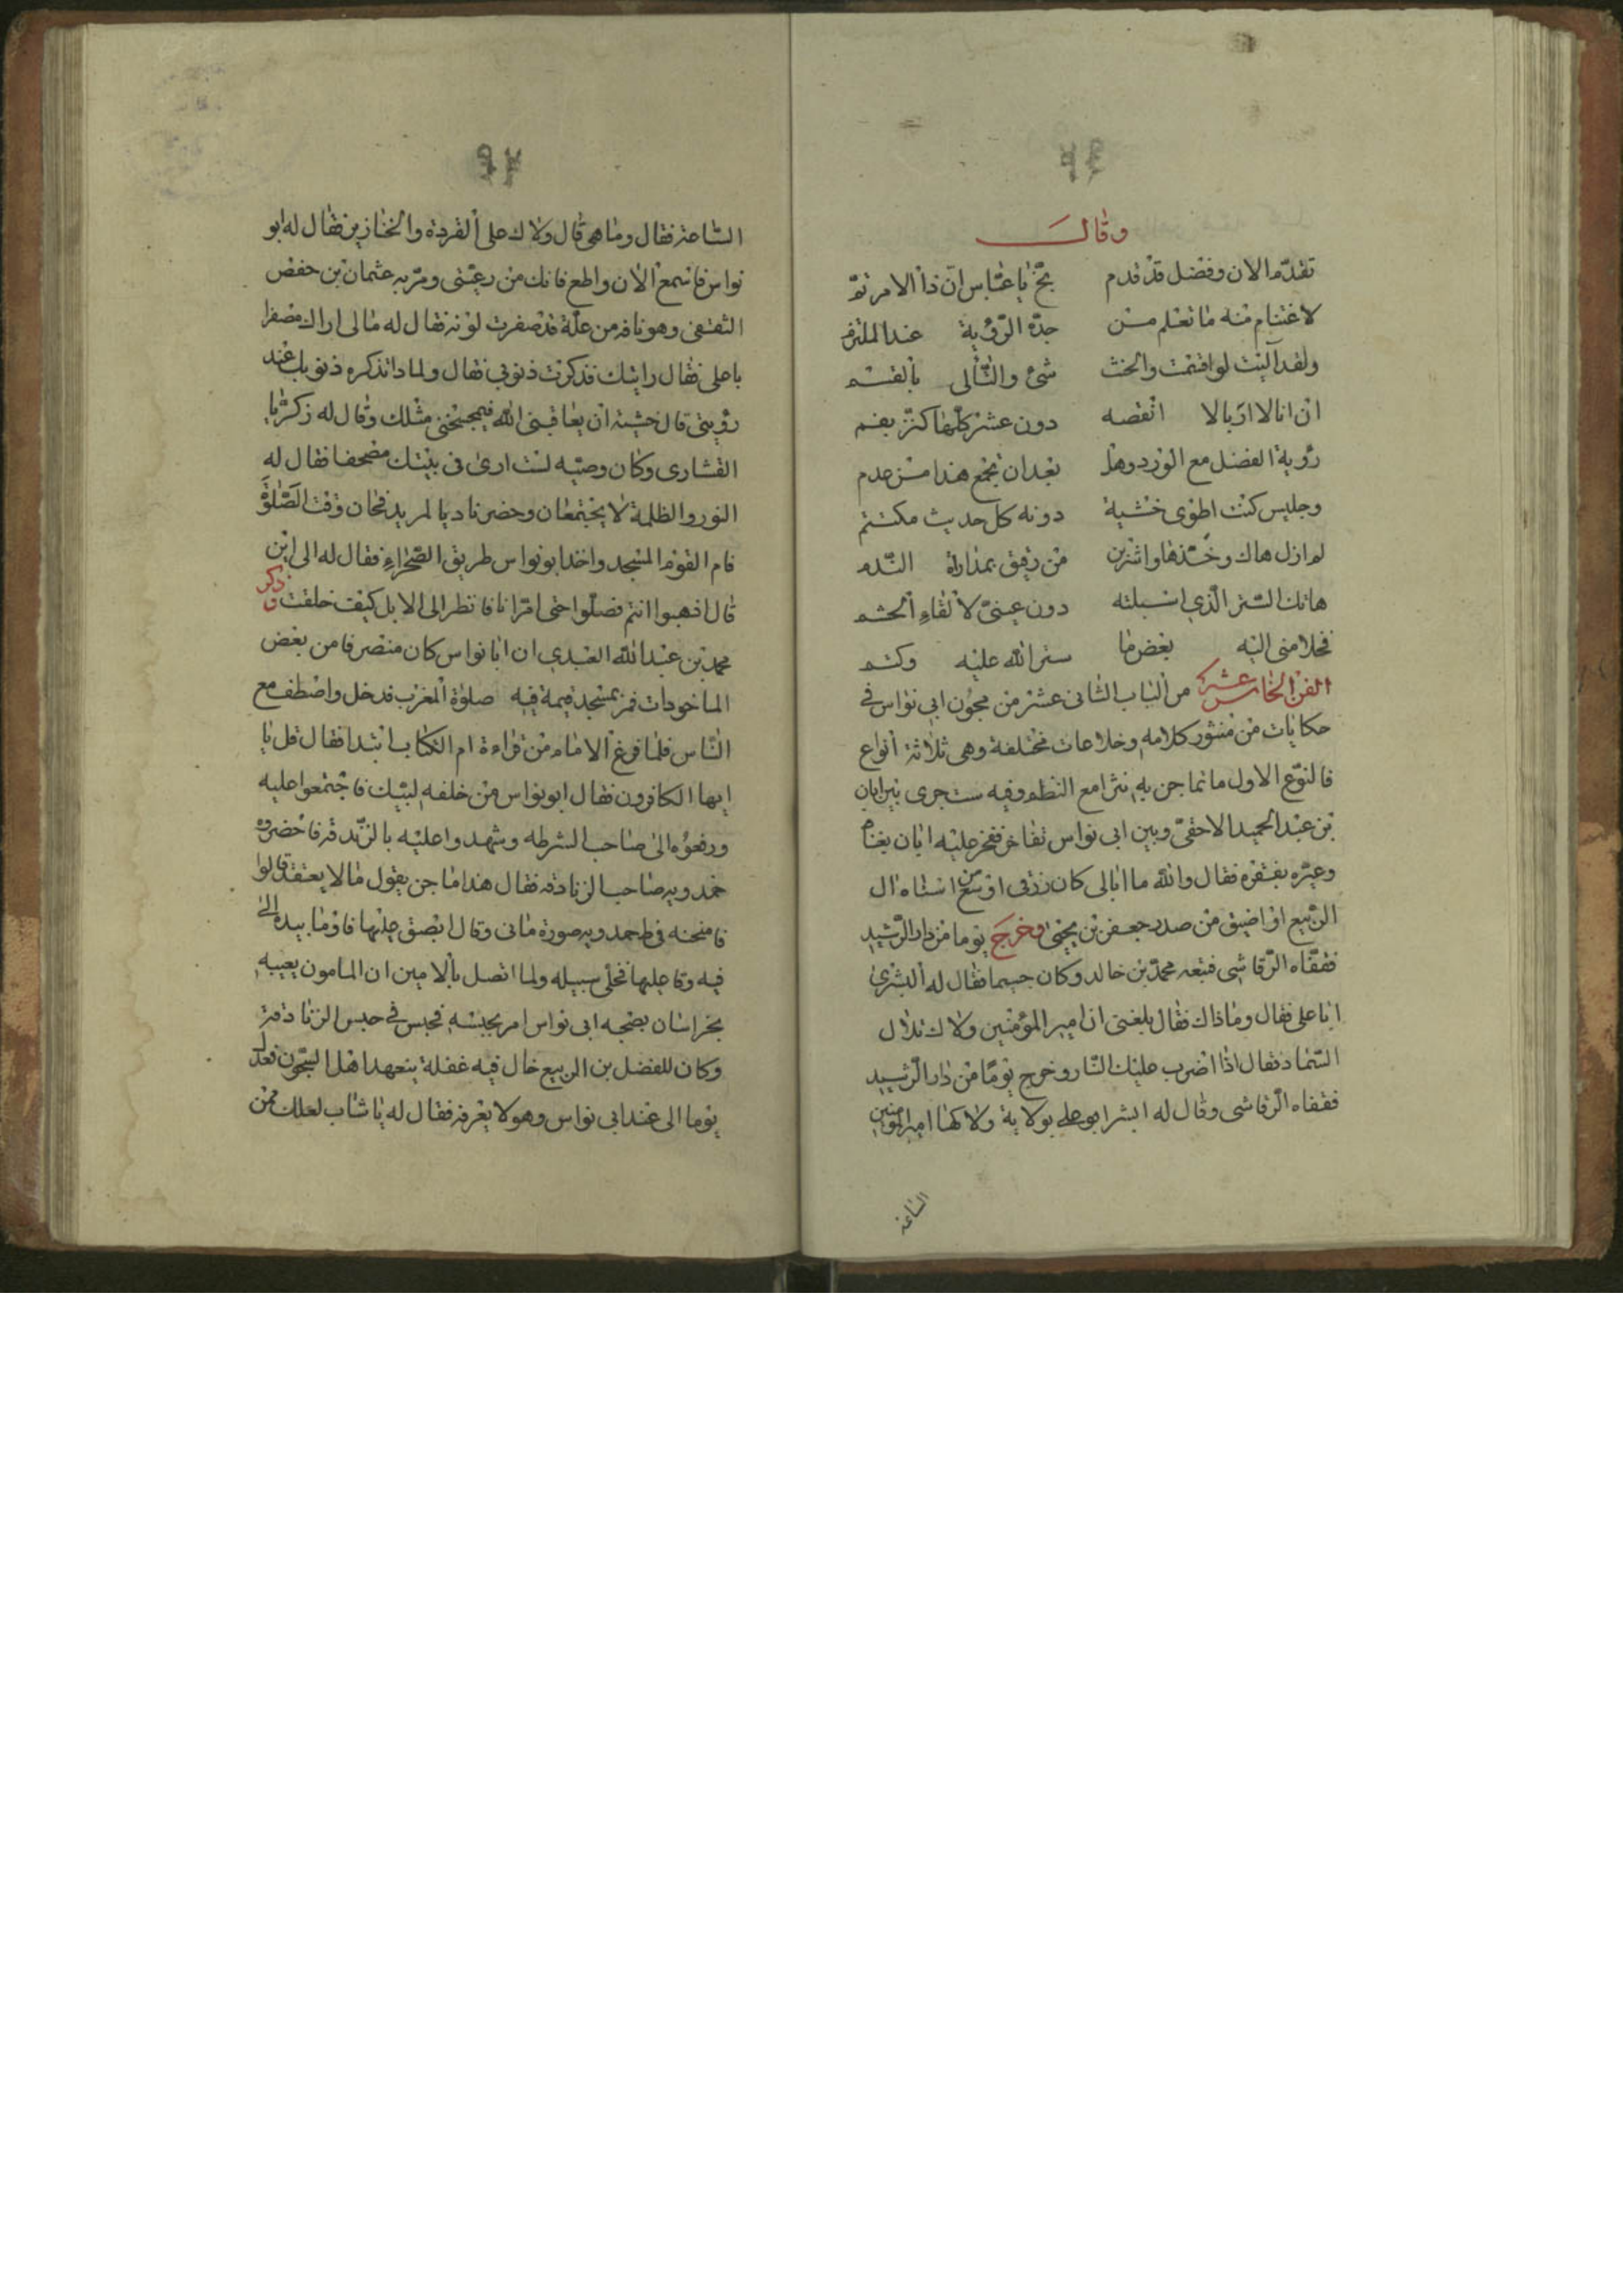 وقال
تقدم الان وفضل قد قدم بخ يا عباس ان ذا الامر تم
لاغتنام منه ما تعلم من جدة الرؤية عند الملتزم
ولقد آليت لو اقسمت والحنث شئ والتألى بالقسم
ان انا لا اربالا انقصه دون عشر كلها كنز بفم
رؤية الفضل مع الورد وهل بعد ان يجمع هذا من عدم
وجليس كنت اطوى خشية دونه كل حديث مكتتم
لم ازل هاك وخذها واشربن من رفيق بمداراة الندم
هاتك الستر الذي اسبلته دون عينى لالقاء الحشم
فخلا منى اليه بعض ما ستر الله عليه وكتم
الفن الخامس عشر من الباب الثانى عشر من مجون ابى نواس فى
حكايات من منثور كلامه وخلاعات مختلفة وهى ثلاثة انواع
فالنوع الاول ما تماجن به نثرا مع النظم وفيه ست جرى بين ابان
بن عبد الحميد الاحقى وبين ابى نواس تفاخر ففخر عليه ابان بغناه
وعيره بفقره فقال والله ما ابالى كان رزقى اوسع من استاه ال
الربيع او اضيق من صدر جعفر بن يحيى وخرج يوما من دار الرشيد
فقفاه الرقاشى فتبعه محمد بن خالد وكان جسيما فقال له البشرى
ابا على فقال وما ذاك فقال بلغنى ان امير المؤمنين ولاك تلال
السماد فقال اذا اضرب عليك النار وخرج يوما من دار الرشيد
فقفاه الرقاشى وقال له ابشر ابو على بولاية ولاكها امير المؤمنين
الساعة
٩٧
الساعة فقال وما هى قال ولاك على القردة والخنازير فقال له ابو
نواس فاسمع الان واطع فانك من رعيتى ومر به عثمان بن حفص
الثقفى وهو ناقه من علة قد صفرت لونه فقال له ما لى اراك مصفرا
يا على فقال رايتك فذكرت ذنوبى فقال ولماذا تذكره ذنوبك عند
رؤيتى قال خشية ان يعاقبنى الله فيمسخنى مثلك وقال له زكريا
القشارى وكان وصيه لست ارى فى بيتك مصحفا فقال له
النور والظلمة لا يجتمعان وحضر ناديا لمريد فحان وقت الصلوة
قام القوم المسجد واخذ ابو نواس طريق الصحراء فقال له الى اين
قال اذهبوا انتم فصلوا حتى اقرا انا فانظر الى الابل كيف خلقت وذكر
محمد بن عبد الله العبدى ان ابا نواس كان منصرفا من بعض
الماخودات فمر بمسجد قيمة فيه صلوة المغرب فدخل واصطف مع
الناس فلما فرغ الامام من قراءة ام الكتاب ابتدا فقال قل يا
ايها الكافرون فقال ابو نواس من خلفه لبيك فاجتمعوا عليه
ورفعوه الى صاحب الشرطه وشهدوا عليه بالزندقة فاحضروه
حمدويه صاحب الزنادقه فقال هذا ماجن يقول ما لا يعتقد قالوا
فامنحنه فطرح حمدويه صورة مانى وقال ابصق عليها فاوما بيده الى
فيه وقا عليها فخلى سبيله ولما اتصل بالامين ان المامون يعيبه
بخراسان بصحبه ابى نواس امر بحبسه فحبس فى حبس الزنادقة
وكان للفضل بن الربيع خال فيه غفلة يتعهد اهل السجون فعدل
يوما الى عند ابى نواس وهو لا يعرفه فقال له يا شاب لعلك ممن